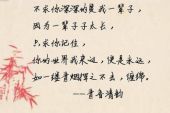 不求你深深的爱我一辈子，
因为一辈子太长，
只求你记住，
你的世界我来过，便是永远，
如一缕青烟挥之不去，缠绵。
——書香清韵